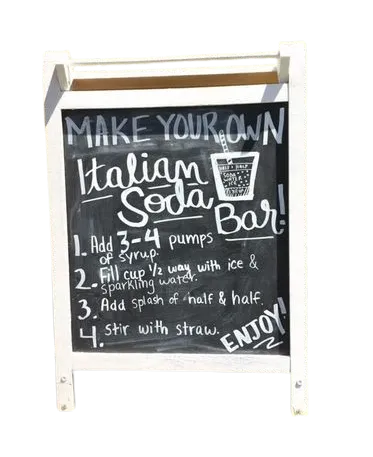 MAKE YOUR OWN
Italian
Soda
Bar!
HALF + HALF
SODA
WATER
ICE
1. Add 3-4 pumps
of syrup.
2. Fill cup 1/2 way with ice &
sparkling water.
3. Add splash of half & half.
4. Stir with straw.
ENJOY!